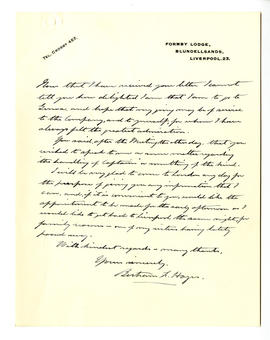 TEL. CROSBY 452.
FORMBY LODGE,
BLUNDELLSANDS,
LIVERPOOL, 23.
Now that I have received your letter I cannot
tell you how delighted I am that I am to go to
and hope that my going may be of service
to the Company, and to yourself for whom I have
always felt the greatest admiration.
You said, after the Meeting the other day, that you
wished to speak to me on some matter regarding
the handling of Captains or something of the kind.
I will be very glad to come to London any day for
the purpose of giving you any information that I
can, but, if it is convenient to you, would like the
appointment to be made for the early afternoon as I
would like to get back to Liverpool the same night for
family reasons - one of my sisters having lately
passed away.
With kindest regards & many thanks,
Yours sincerely,
Bertram F. Hayes.